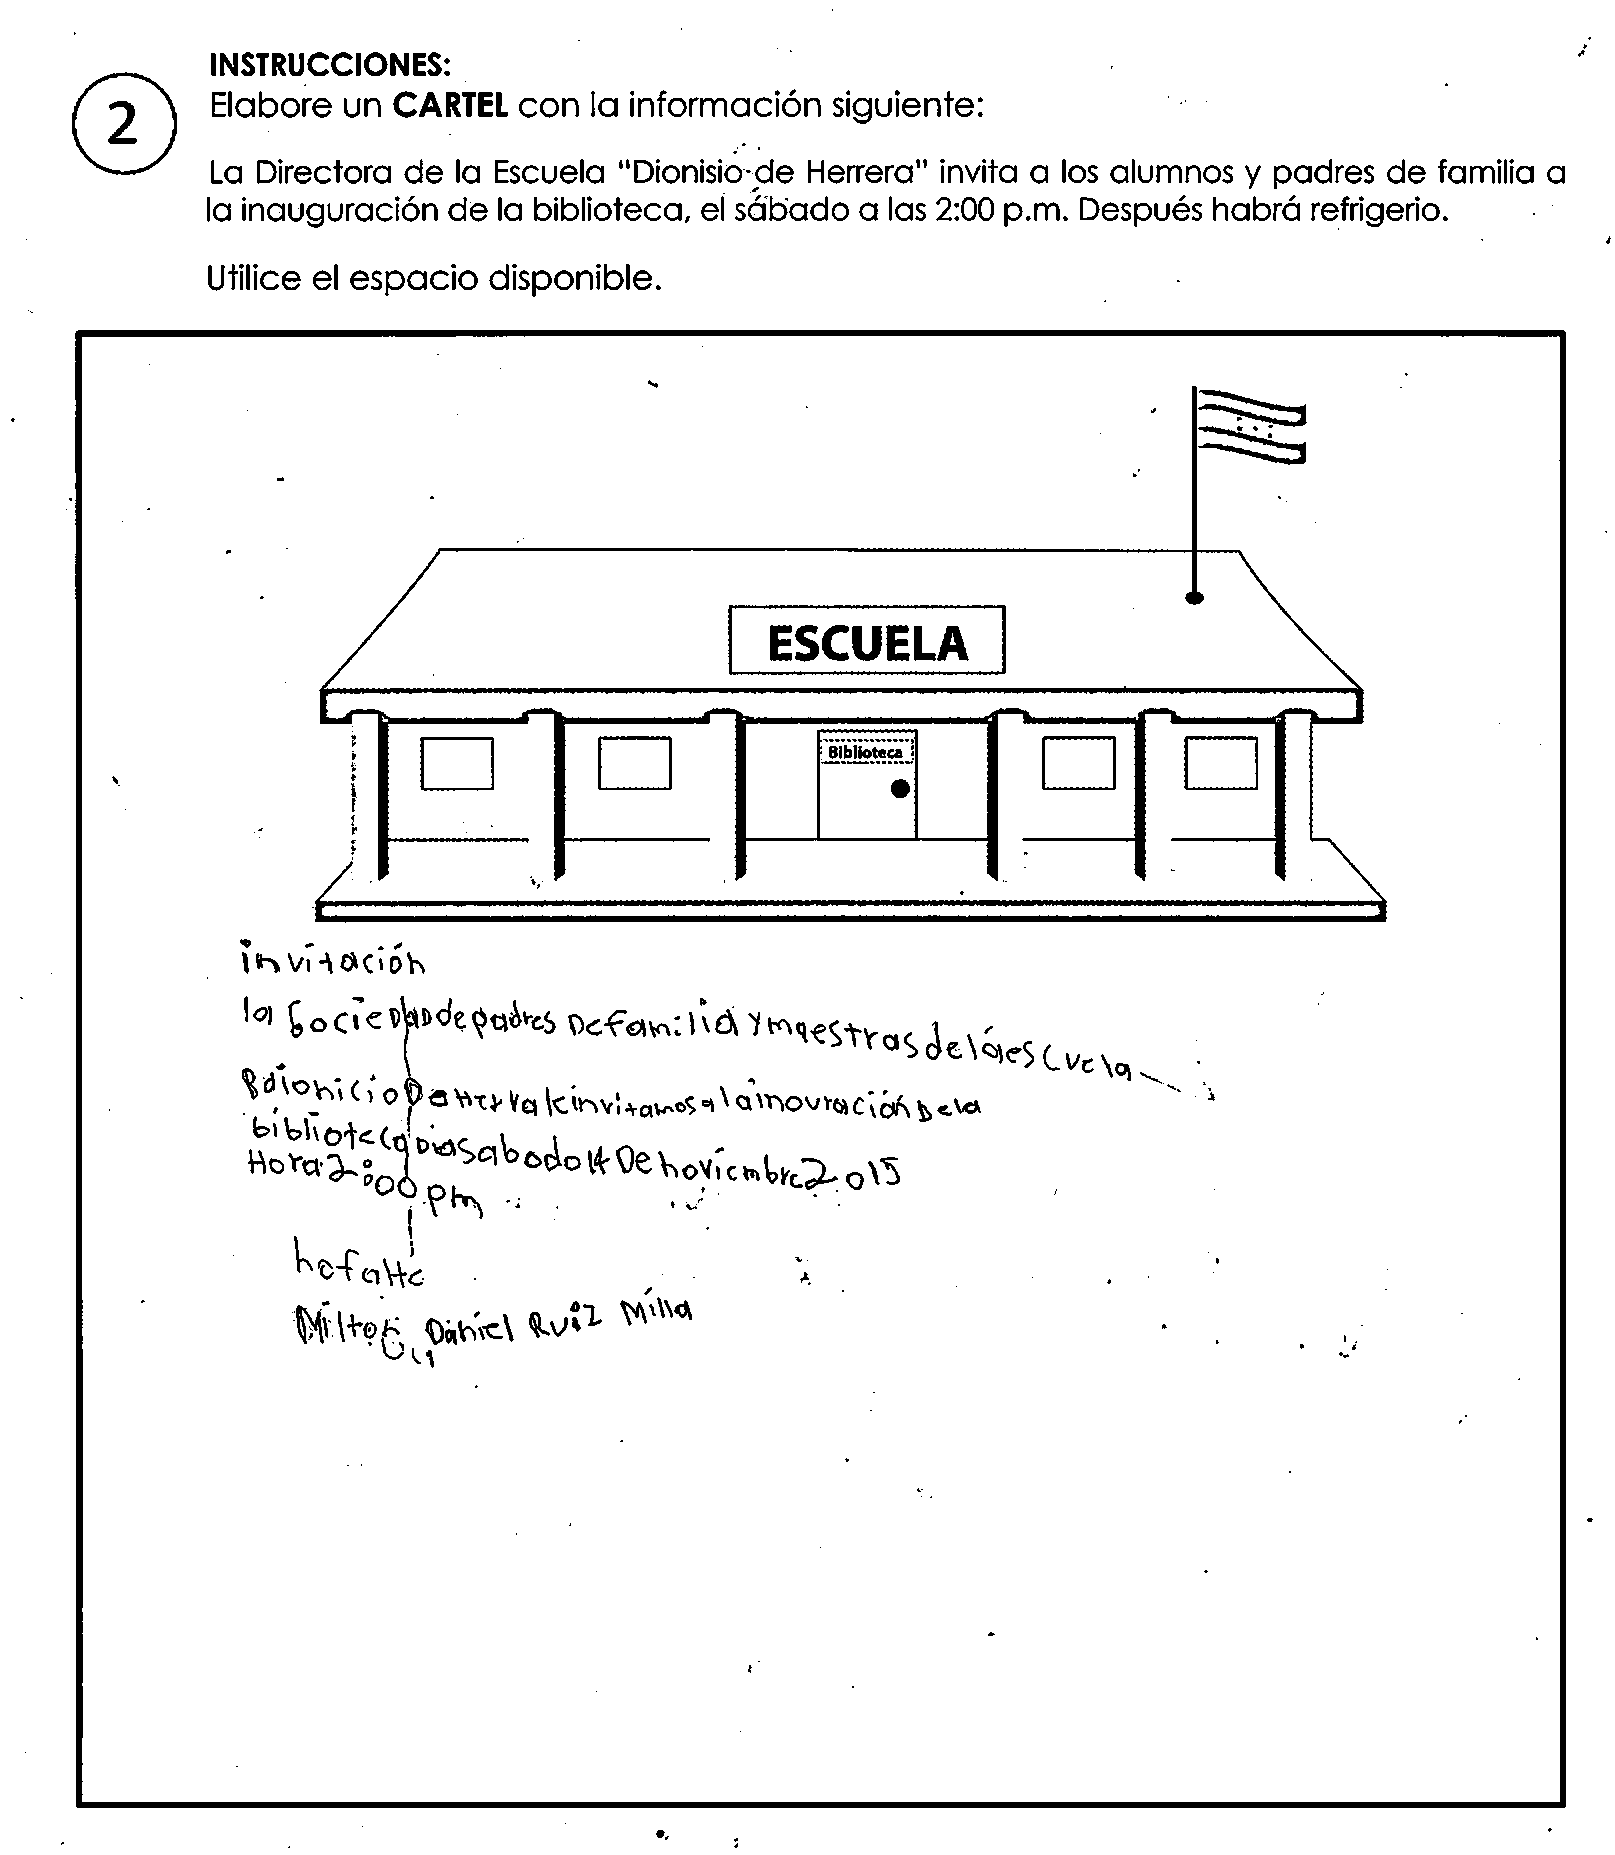 INSTRUCCIONES:
2
Elabore un CARTEL con la información siguiente:
La Directora de la Escuela "Dionisio de Herrera" invita a los alumnos y padres de familia a
la inauguración de la biblioteca, el sábado a las 2:00 p.m. Después habrá refrigerio.
Utilice el espacio disponible.
ESCUELA
Biblioteca
invitación
la Sociedad de padres De familia y maestras de la escuela
dionicio De Herrera le invitamos a la inouración De la
biblioteca Dia sabodo 14 De noviembre 2015
Hora 2:00 pm
no falte
Milton Daniel Ruiz Milla